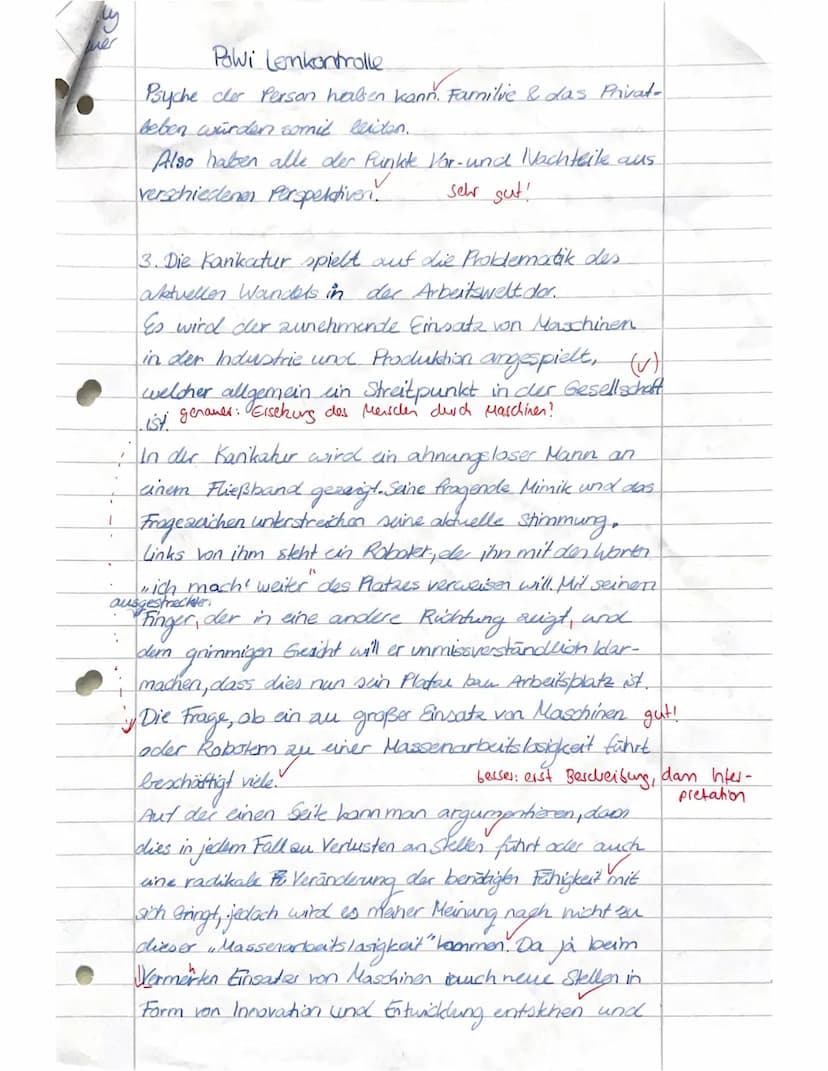 ly
ner
PoWi Lernkontrolle
Psyche der Person haben kann. Familie & das Privat-
leben würden somit leiden.
Also haben alle der Punkte Vor- und Nachteile aus
verschiedenen Perspektiven. sehr gut!
3. Die Karikatur spielt auf die Problematik des
aktuellen Wandels in der Arbeitswelt dar.
Es wird der zunehmende Einsatz von Maschinen
in der Industrie und Produktion angespielt, (✓)
welcher allgemein ein Streitpunkt in der Gesellschaft
ist. genauer: Ersetzung des Menschen durch Maschinen!
In der Karikatur wird ein ahnungsloser Mann an
einem Fließband gezeigt. Seine fragende Mimik und das
Fragezeichen unterstreichen seine aktuelle Stimmung.
Links von ihm steht ein Roboter, der ihn mit den Worten
„ich mach' weiter" des Platzes verweisen will. Mit seinem
ausgestreckter
Finger, der in eine andere Richtung zeigt, und
dem grimmigen Gesicht will er unmissverständlich klar-
machen, dass dies nun sein Platz bzw Arbeitsplatz ist.
Die Frage, ob ein zu großer Einsatz von Maschinen gut!
oder Robotern zu einer Massenarbeitslosigkeit führt
beschäftigt viele. besser: erst Beschreibung, dann Inter-
pretation
Auf der einen Seite kann man argumentieren, dass
dies in jedem Fall zu Verlusten an Stellen führt oder auch
eine radikale Veränderung der benötigten Fähigkeit mit
sich bringt, jedoch wird es meiner Meinung nach nicht zu
dieser „Massenarbeitslosigkeit" kommen. Da ja beim
Vermehrten Einsatzes von Maschinen auch neue Stellen in
Form von Innovation und Entwicklung entstehen und